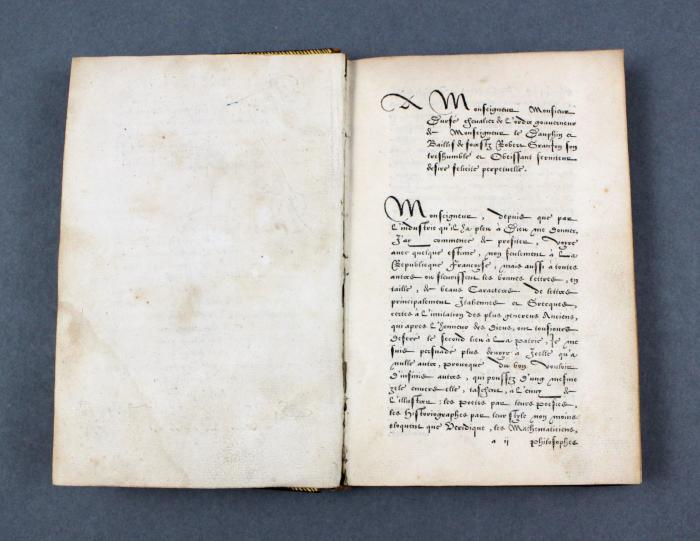 A Monseigneur Monsieur
Durfé chevalier de l'ordre gouuerneur
de Monseigneur le Dauphin et
Baillif de forestz Robert Granjon son
treshumble et Obeissant seruiteur
desire felicité perpetuelle.
Monseigneur, depuis que par
l'industrie qu'il ha pleu à Dieu me donner,
J'ay commencé de profiter, voyre
auec quelque estime, non seulement à La
Republicque Françoyse, mais aussi à toutes
autres ou fleurissent les bonnes lettres, en
taille, de beaus Caracteres de lettres
principalement Italiennes et Grecques,
certes à l'imitation des plus genereus Anciens,
qui apres l'honneur des Dieus, ont tousiours
deferé le second lieu à La patrie, Je me
suis persuadé plus deuoyr à Jcelle qu'à
nulle autre, prouoqué du bon vouloir
d'infinis autres, qui poussez d'ung mesme
zele enuers elle, taschent, à l'enuy de
l'illustrer: les poetes par leurs poesies,
les Historiographes par leur style non moins
eloquent que Veridique, les Mathematiciens,
a ii philosophes